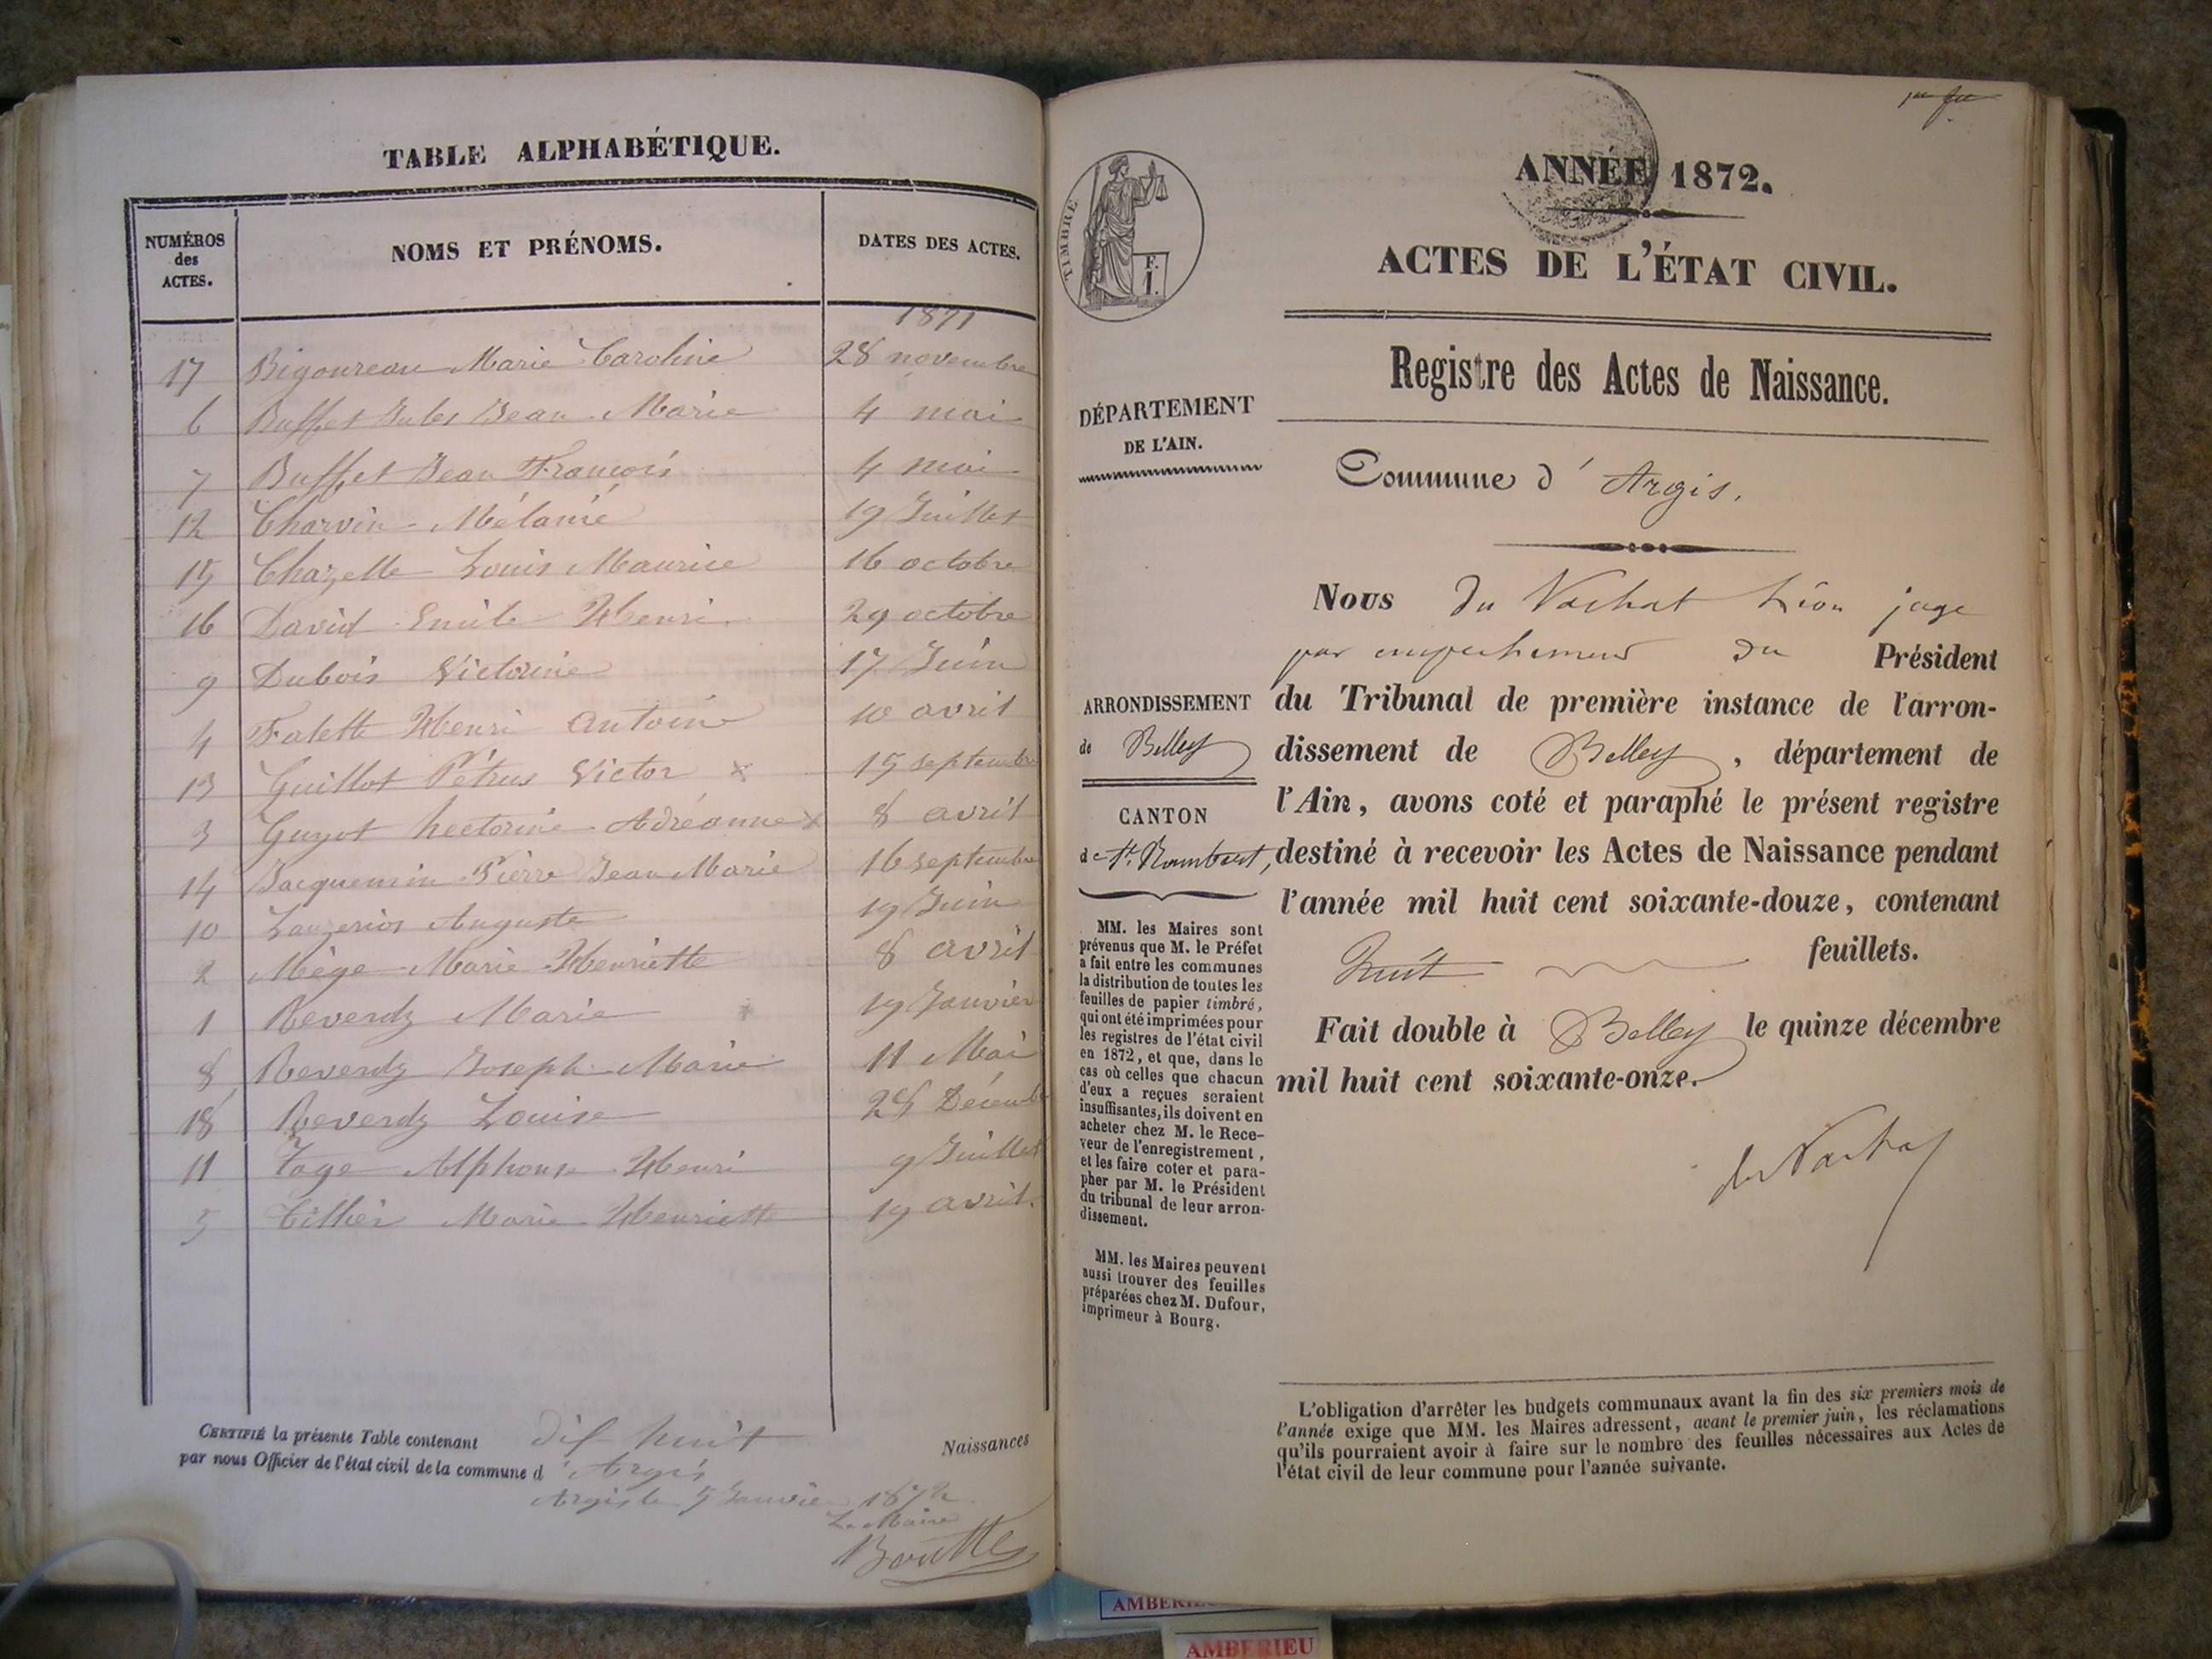 TABLE ALPHABÉTIQUE.
NUMÉROS
des
ACTES.
NOMS ET PRÉNOMS.
DATES DES ACTES.
1871
17 Bigoureau Marie Caroline 28 novembre
6 Buffet Jules Jean Marie 4 mai
7 Buffet Jean François 4 mai
12 Charvin Mélanie 19 Juillet
15 Chazelle Louis Maurice 16 octobre
16 David Emile Henri 29 octobre
9 Dubois Victorine 17 Juin
4 Falette Henri Antoine 10 avril
13 Guillot Pétrus Victor x 15 septembre
3 Guyot hectorine Adréanne x 8 avril
14 Jacquemin Pierre Jean Marie 16 septembre
10 Auguste 19 Juin
2 Mège Marie Henriette 8 avril
1 Reverdy Marie 19 Janvier
8 Reverdy Joseph Marie 11 Mai
18 Reverdy Louise Décemb
11 Alphonse Henri 9 Juillet
5 Marie Henriette 19 avril.
CERTIFIÉ la présente Table contenant dix huit Naissances
par nous Officier de l'état civil de la commune d'Argis
Argis le 5 Janvier 1872
Le Maire
1er fet
TIMBRE
F.
1.
ANNÉE 1872.
ACTES DE L'ÉTAT CIVIL.
Registre des Actes de Naissance.
DÉPARTEMENT
DE L'AIN.
Commune d' Argis.
Nous du Vachat Léon juge
par empechement du Président
du Tribunal de première instance de l'arron-
dissement de Belley, département de
l'Ain, avons coté et paraphé le présent registre
destiné à recevoir les Actes de Naissance pendant
l'année mil huit cent soixante-douze, contenant
huit feuillets.
Fait double à Belley le quinze décembre
mil huit cent soixante-onze.
du Vachat
ARRONDISSEMENT
de Belley
CANTON
de St. Rambert,
MM. les Maires sont
prévenus que M. le Préfet
a fait entre les communes
la distribution de toutes les
feuilles de papier timbré,
qui ont été imprimées pour
les registres de l'état civil
en 1872, et que, dans le
cas où celles que chacun
d'eux a reçues seraient
insuffisantes, ils doivent en
acheter chez M. le Rece-
veur de l'enregistrement,
et les faire coter et para-
pher par M. le Président
du tribunal de leur arron-
dissement.
MM. les Maires peuvent
aussi trouver des feuilles
préparées chez M. Dufour,
imprimeur à Bourg.
L'obligation d'arrêter les budgets communaux avant la fin des six premiers mois de
l'année exige que MM. les Maires adressent, avant le premier juin, les réclamations
qu'ils pourraient avoir à faire sur le nombre des feuilles nécessaires aux Actes de
l'état civil de leur commune pour l'année suivante.
AMBERIEU